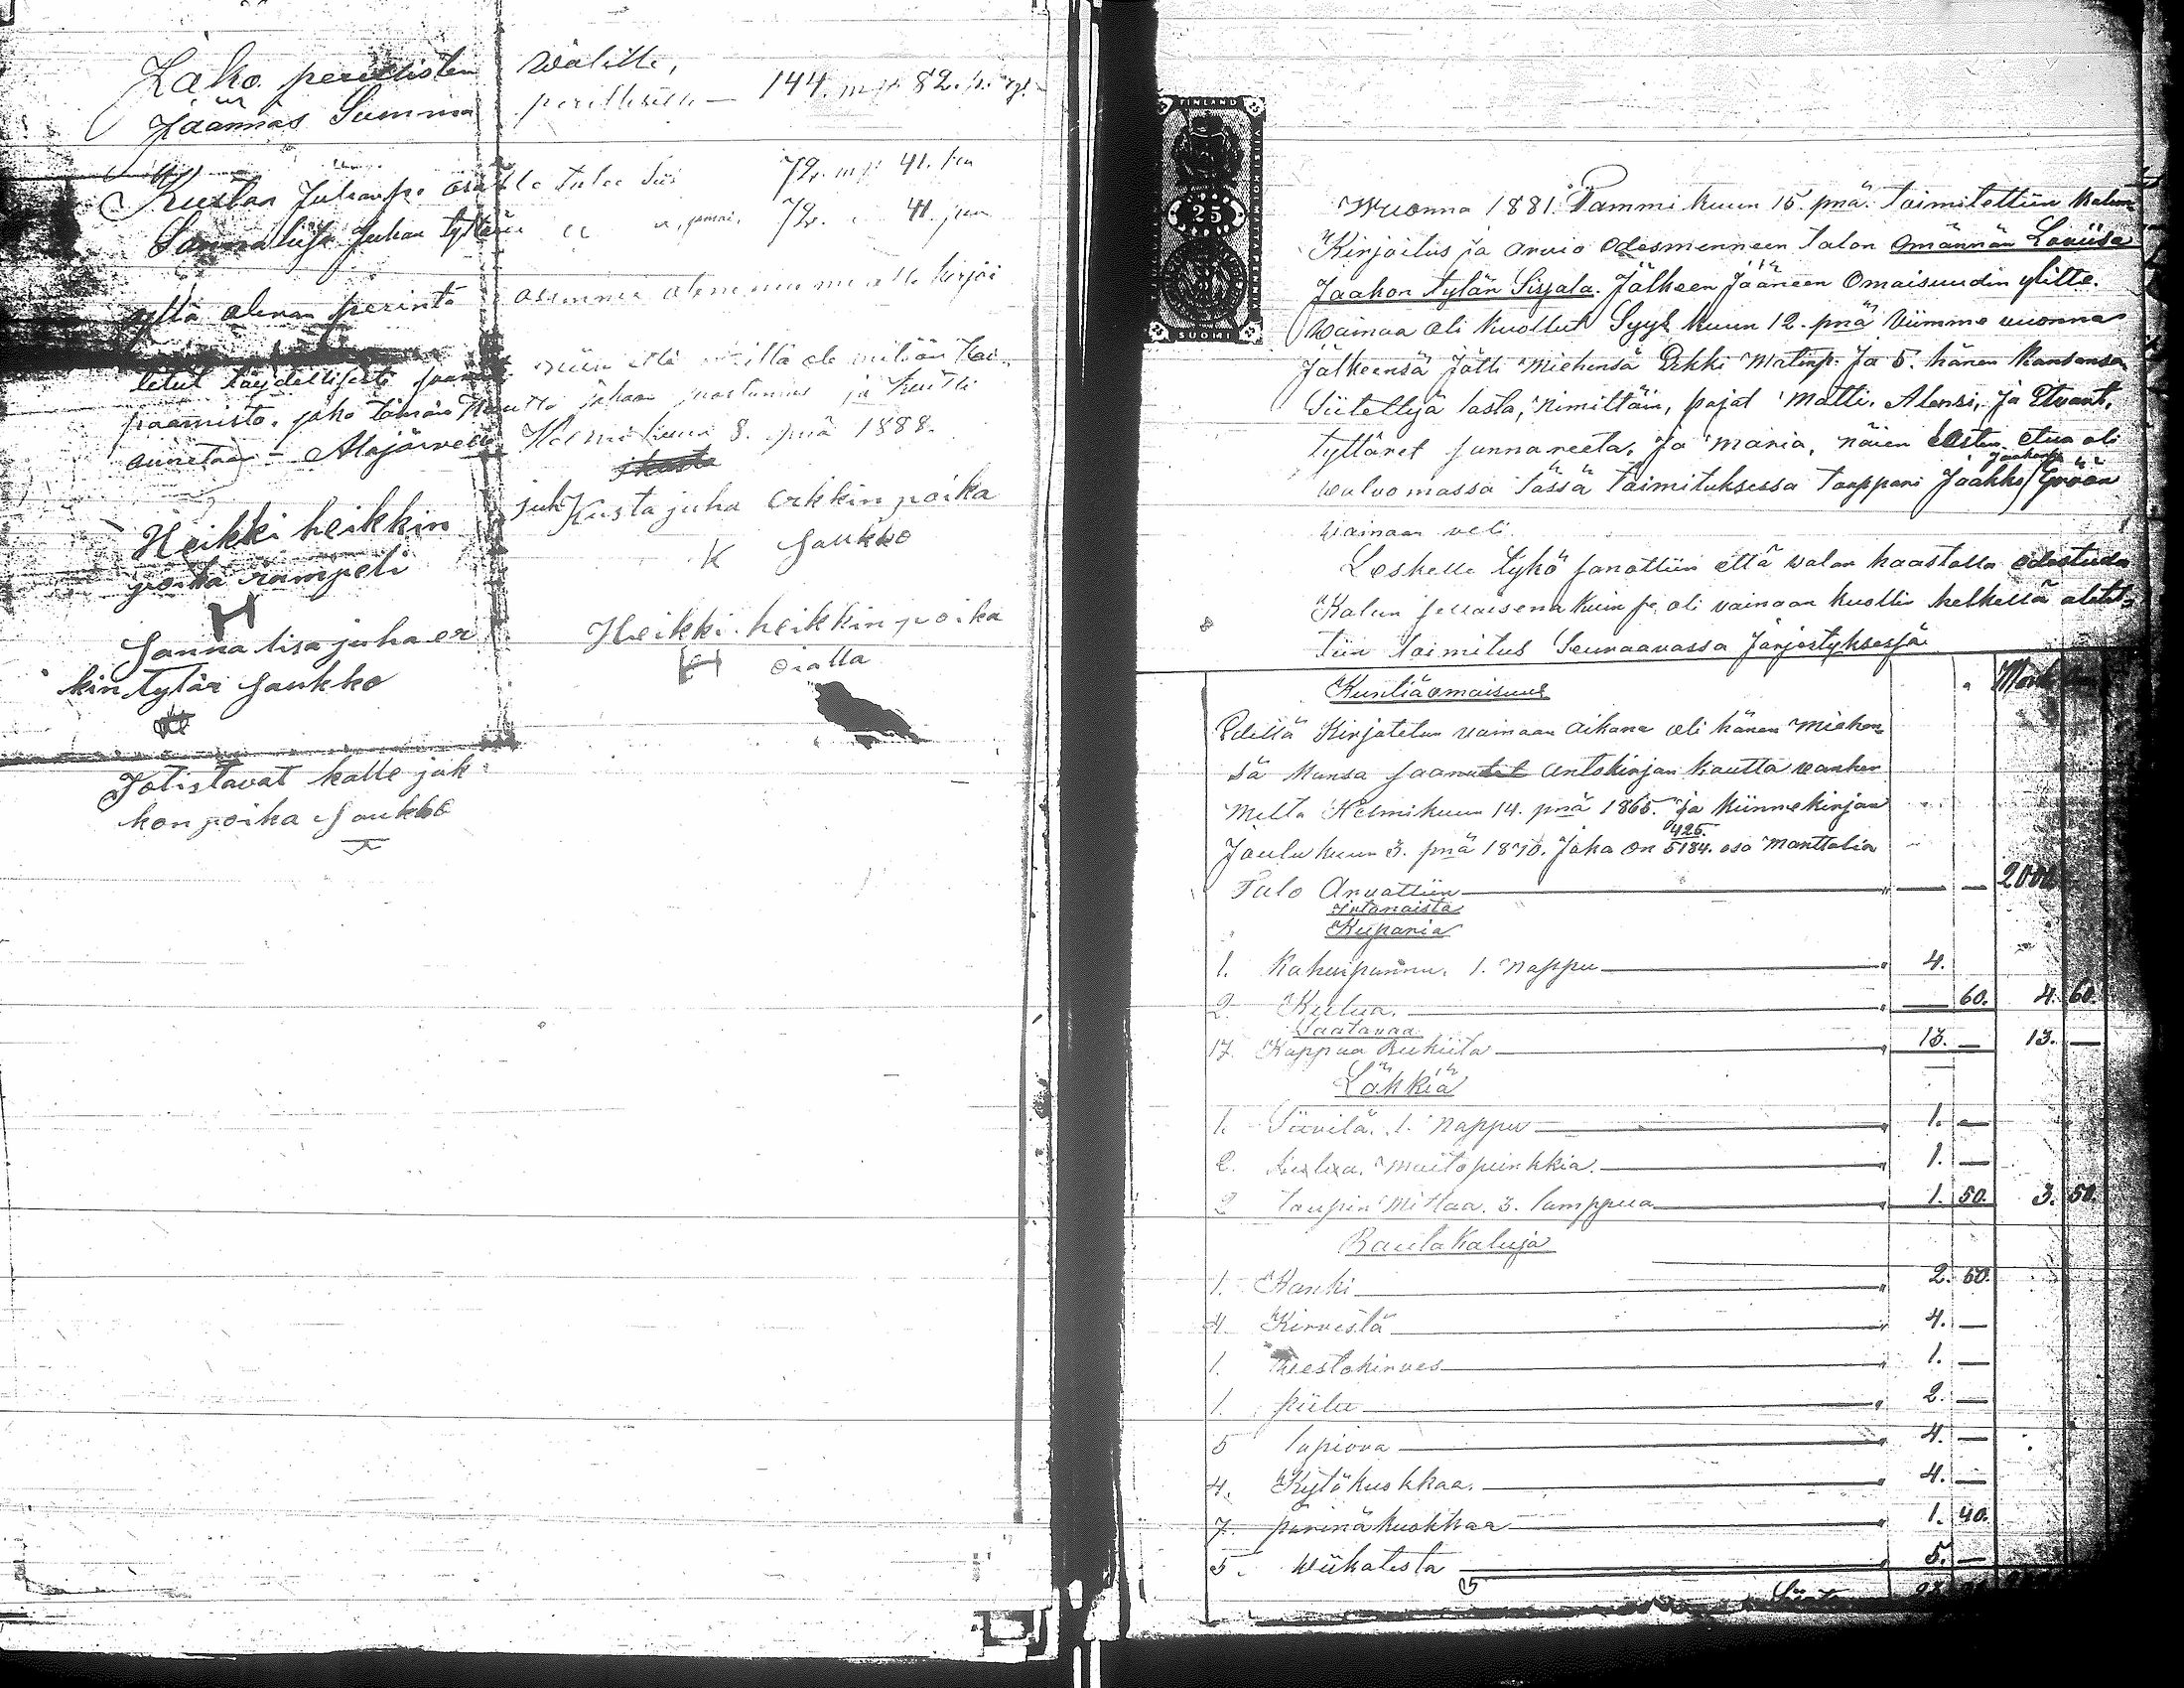 Jako perillisten välille,
Jäännös Summa perillisille — 144. mk 82. p.
Kustaa Juhanp. osalle tulee Siis 72. mk 41. pen
Sannaliisa Juhan tyttären " " 72. " 41. pen
yllä olevan perintö osamme olemme me alle kirjoi
tetut täydellisesti saaneet niin että
jako tämän kautta jahaan ja kuitti
annetaan — Alajärvellä Helmikuun 8. pnä 1888.
Heikki heikkin
poika rämpeli
H
Sanna lisa juha er
kin tytär Saukko
juh Kusta juha erkkin poika
K Saukko
Heikki heikkin poika
H oialla
Totistavat kalle jak
kon poika Saukko
FINLAND
25
SUOMI
Wuonna 1881. Tammikuun 15. pnä. toimitettiin kalun
Kirjoitus ja arvio edesmenneen talon Emännän Lovisa
Jaakon tytän Sisjala. Jälkeen Jääneen Omaisuudin ylitte.
Wainaa oli kuollut Syys kuun 12. pnä Viimme vuonna
Jälkeensä Jätti Miehensä Erkki Matinp. Ja 5. hänen Kansansa
Siitettyjä lasta, nimittäin, pojat Matti, Aleksi, ja Etvart,
tyttäret sannareeta, Ja Maria, näien lasten etua oli
walvomassa tässä toimituksessa torppari Jaakko Jaakonp
wainaan veli
Leskelle tykö sanottiin että walan haastolla edestuda
Kalun sellaisena kuin se oli vainaan kuollin hetkellä alotet-
tiin toimitus Seuraavassa Järjestyksessä
Kiintiäomaisuus Mark
Edellä Kirjotetun vainaan aikana oli hänen Miehen-
sä kansa saanutet antokirjan kautta vanhem
milta Helmikuun 14. pnä 1865. ja kiinnekirjan
Joulukuun 3. pnä 1870. Joka on 425. 5184. osa Manttalia
Talo Arvattiin 2000
Irtonaista
Kuparia
1. Kahvipannu. 1. nappu 4.
2. Kulua. — 60. 4. 60
Saatavaa
17. Kappaa Rukiita 13. — 13. —
Läkkiä
1. Siivilä. 1. nappu 1. —
2. maitopunkkia. 1. —
2 taupin Mittaa. 3. lamppua 1. 50. 3. 50.
Rautakaluja
1. Kanki 2. 50.
4. Kirvestä 4. —
1. kirves 1. —
1. piilu 2. —
5 lapiova 4. —
4. Kytökuokkaa. 4. —
7. perinäkuokkaa 1. 40.
5. wiikatesta 5. —
Siirto